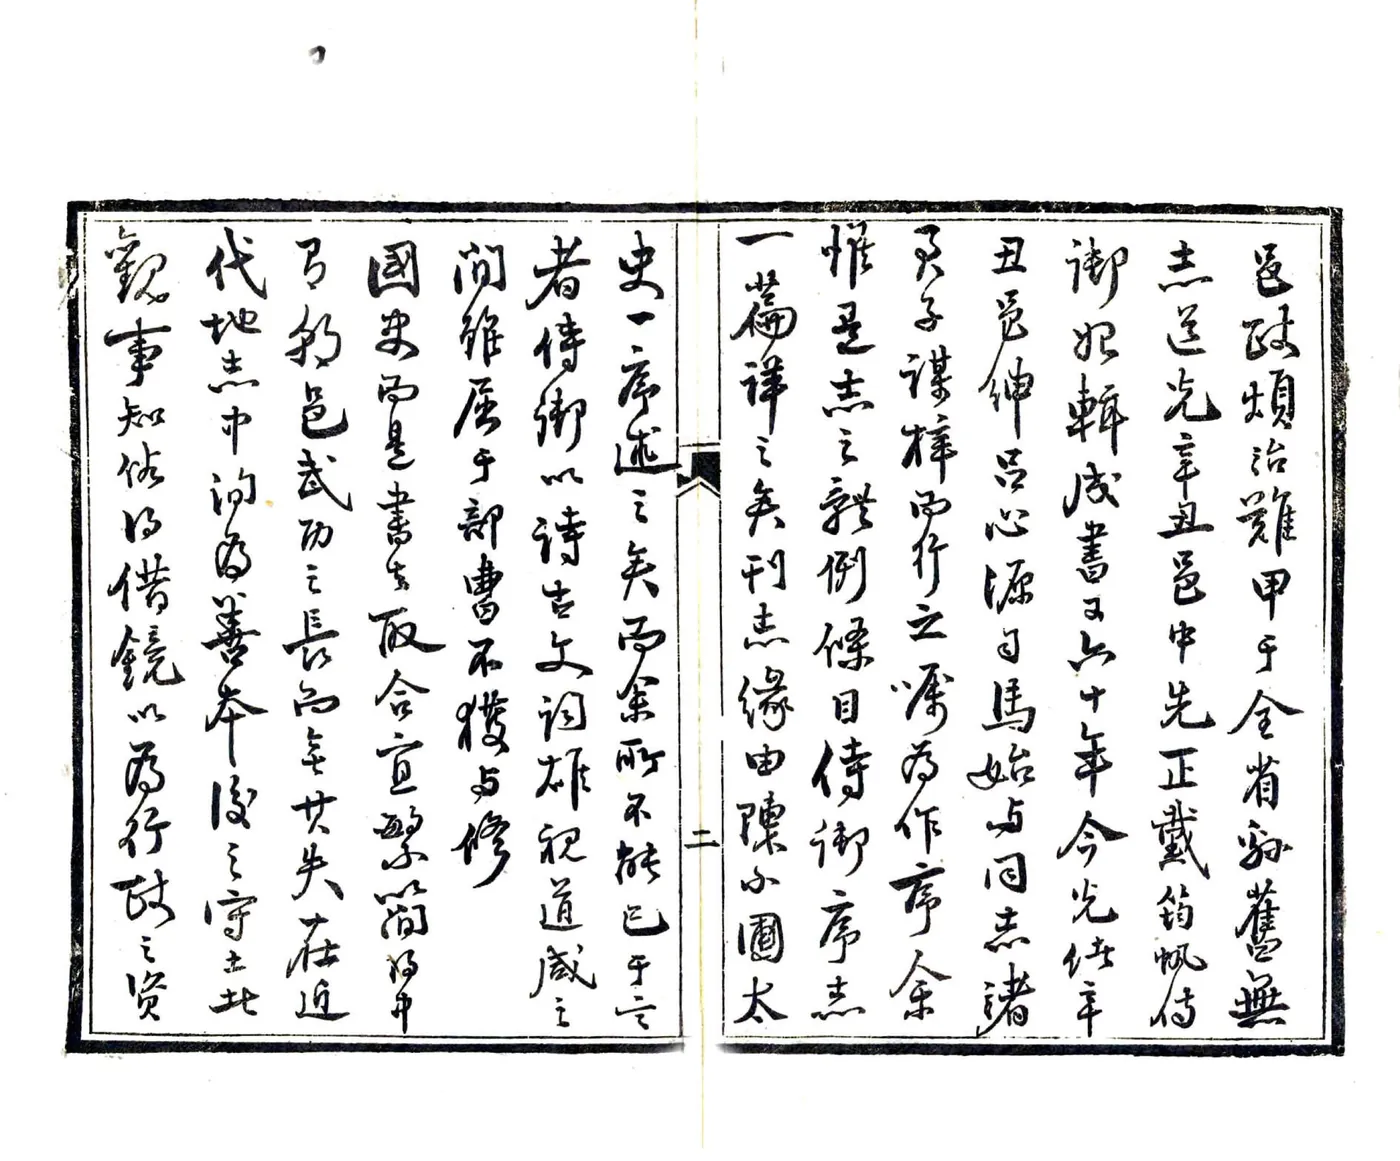 邑政煩治難甲于全省縣舊無
志道光辛丑邑中先正戴筠帆侍
御始輯成書又六十年今光緒辛
丑邑紳呂心源司馬始与同志諸
君子謀梓而行之囑為作序余
惟是志之體例條目侍御序志
一篇詳之矣刊志緣由陳小圃太
史一序述之矣而余所不能已于言
者侍御以詩古文詞雄視道咸之
間雖屈于部曹不獲与修
國史而是書去取合宜繁簡得中
有朝邑武功之長而無其失在近
代地志中洵為善本後之守土此
觀事知俗得借鏡以為行政之資
二